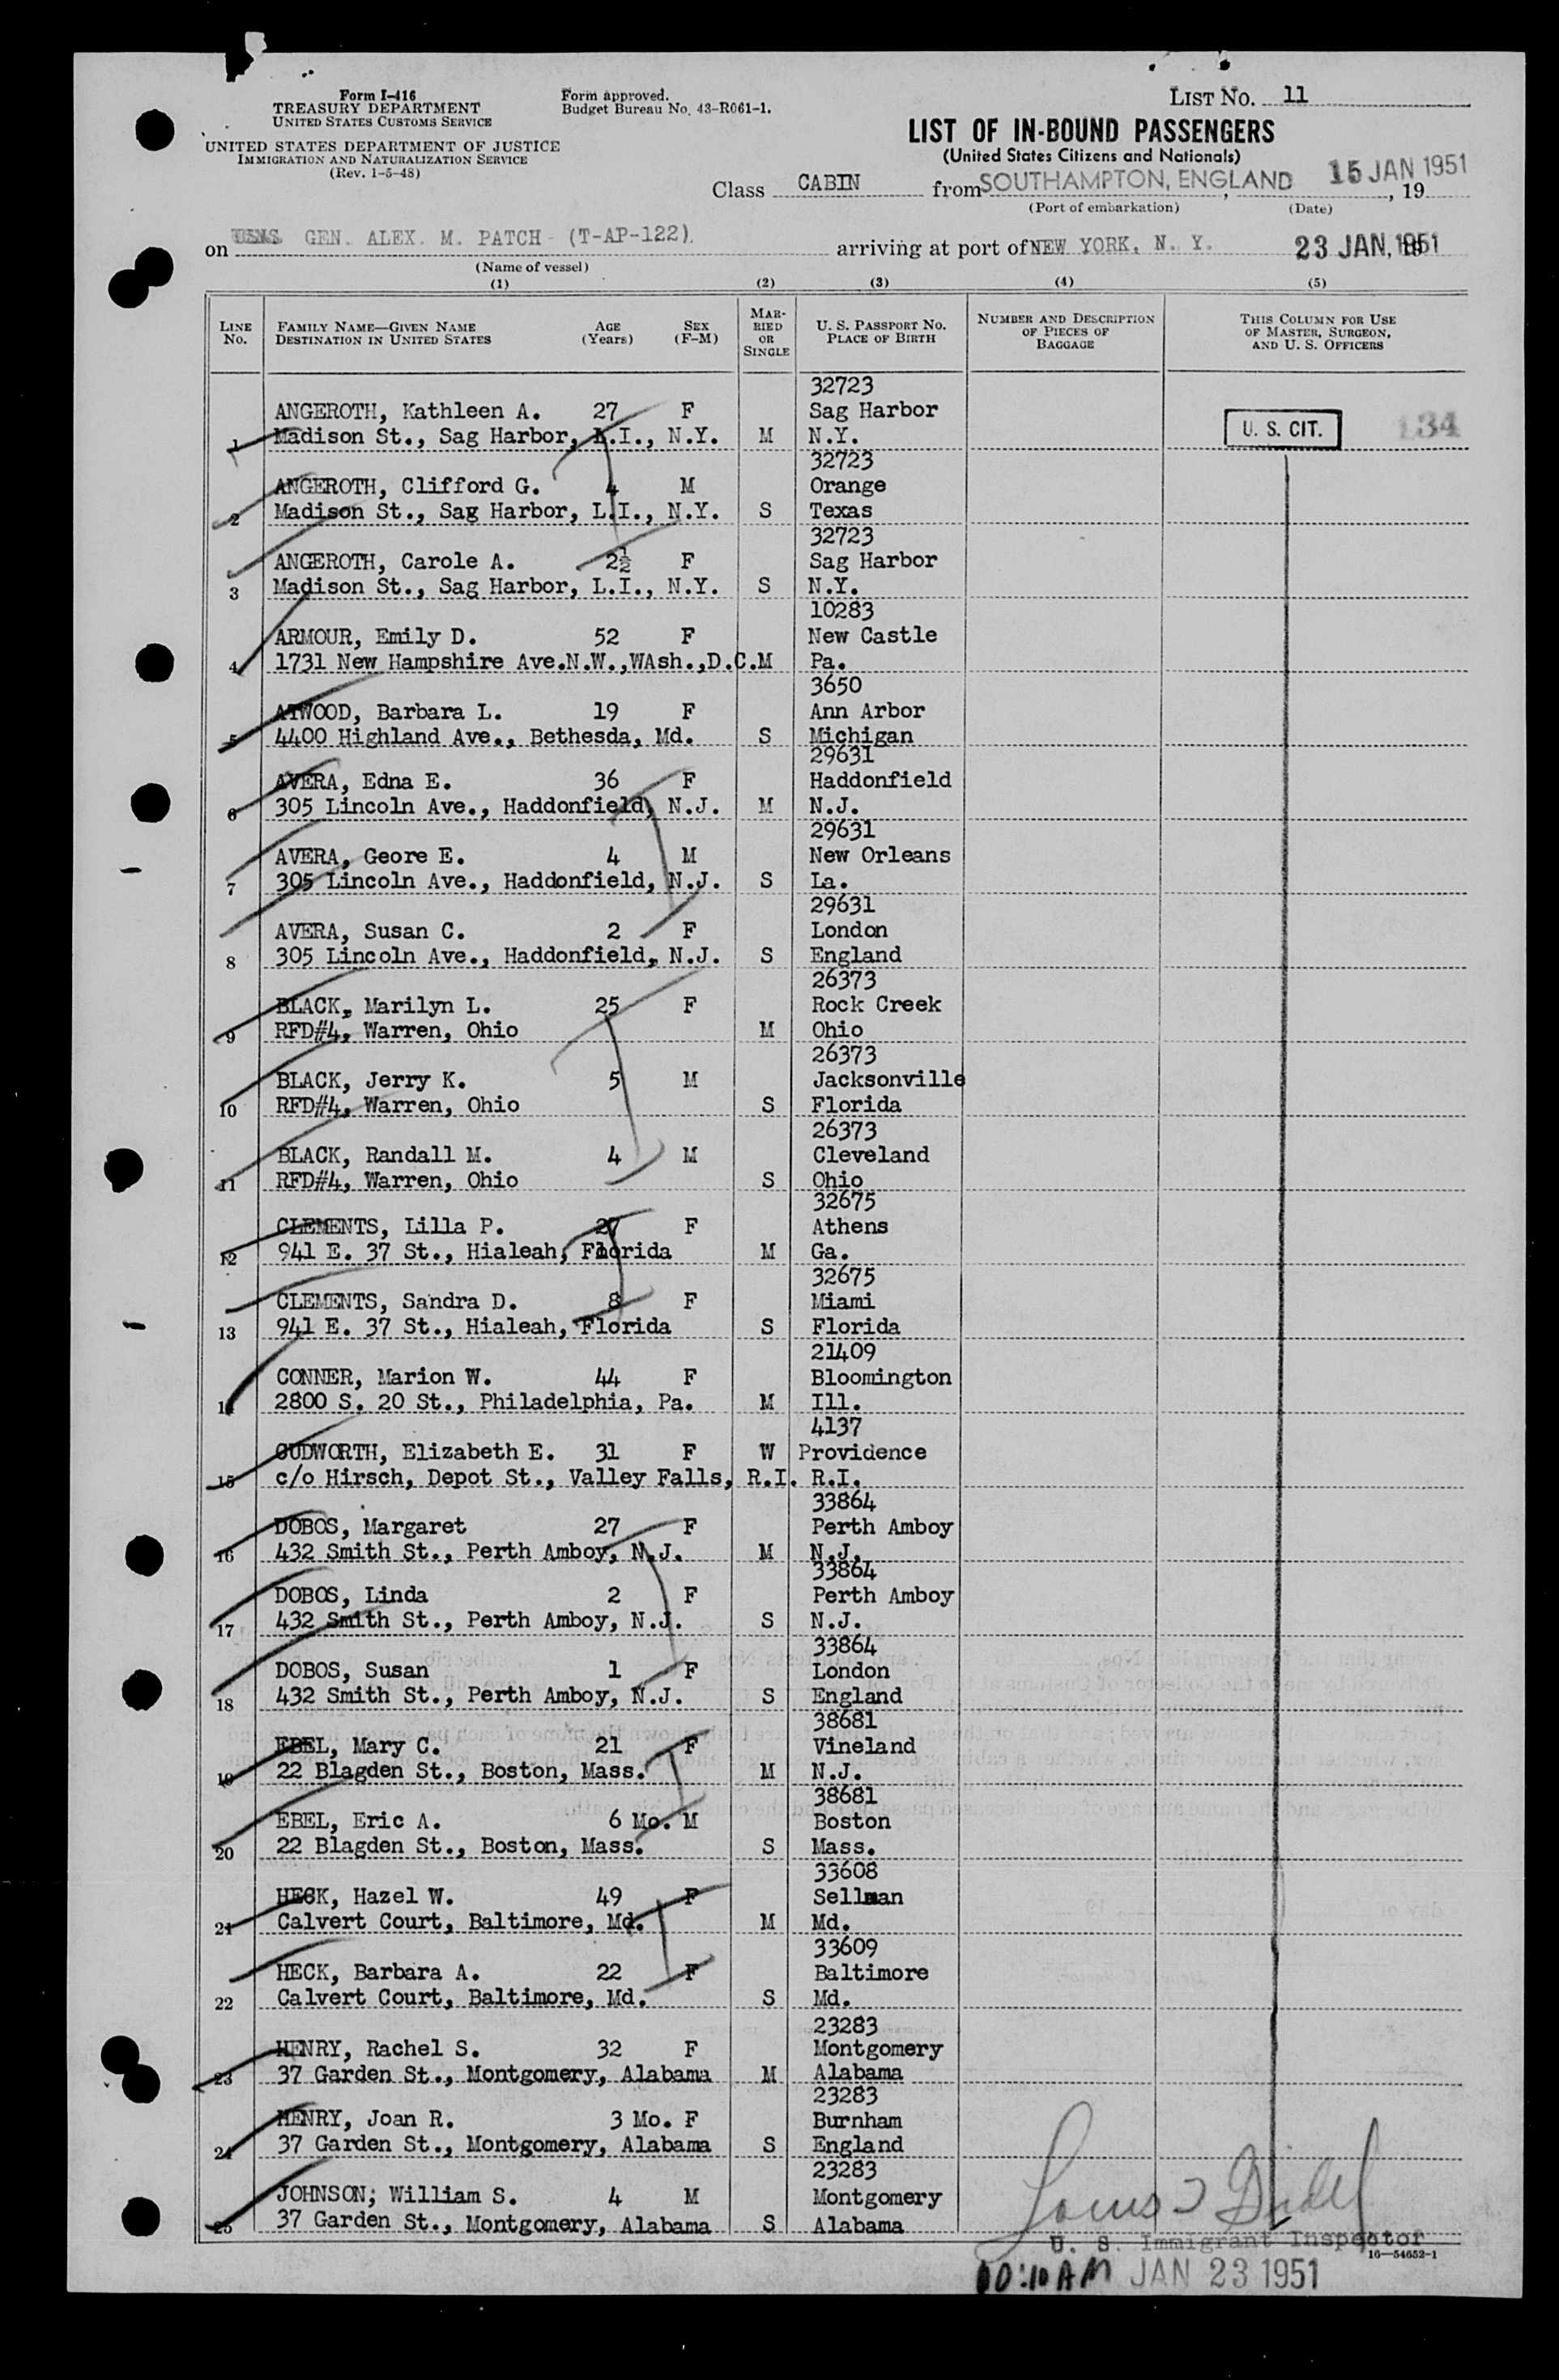 Form I-416
TREASURY DEPARTMENT
UNITED STATES CUSTOMS SERVICE
UNITED STATES DEPARTMENT OF JUSTICE
IMMIGRATION AND NATURALIZATION SERVICE
(Rev. 1-5-48)
Form approved.
Budget Bureau No. 43-R061-1.
LIST NO. 11
LIST OF IN-BOUND PASSENGERS
(United States Citizens and Nationals)
Class CABIN from SOUTHAMPTON, ENGLAND, 15 JAN 1951, 19
(Port of embarkation) (Date)
on USNS GEN. ALEX. M. PATCH (T-AP-122) arriving at port of NEW YORK, N. Y. 23 JAN, 1951
(Name of vessel)
(1) (2) (3) (4) (5)
LINE No. FAMILY NAME—GIVEN NAME DESTINATION IN UNITED STATES AGE (Years) SEX (F-M) MARRIED OR SINGLE U. S. PASSPORT NO. PLACE OF BIRTH NUMBER AND DESCRIPTION OF PIECES OF BAGGAGE THIS COLUMN FOR USE OF MASTER, SURGEON, AND U. S. OFFICERS
32723
ANGEROTH, Kathleen A. 27 F Sag Harbor
1 Madison St., Sag Harbor, L.I., N.Y. M N.Y. U. S. CIT. 134
32723
ANGEROTH, Clifford G. 4 M Orange
2 Madison St., Sag Harbor, L.I., N.Y. S Texas
32723
ANGEROTH, Carole A. 2½ F Sag Harbor
3 Madison St., Sag Harbor, L.I., N.Y. S N.Y.
10283
ARMOUR, Emily D. 52 F New Castle
4 1731 New Hampshire Ave.N.W.,WAsh.,D.C. M Pa.
3650
ATWOOD, Barbara L. 19 F Ann Arbor
5 4400 Highland Ave., Bethesda, Md. S Michigan
29631
AVERA, Edna E. 36 F Haddonfield
6 305 Lincoln Ave., Haddonfield, N.J. M N.J.
29631
AVERA, Geore E. 4 M New Orleans
7 305 Lincoln Ave., Haddonfield, N.J. S La.
29631
AVERA, Susan C. 2 F London
8 305 Lincoln Ave., Haddonfield, N.J. S England
26373
BLACK, Marilyn L. 25 F Rock Creek
9 RFD#4, Warren, Ohio M Ohio
26373
BLACK, Jerry K. 5 M Jacksonville
10 RFD#4, Warren, Ohio S Florida
26373
BLACK, Randall M. 4 M Cleveland
11 RFD#4, Warren, Ohio S Ohio
32675
CLEMENTS, Lilla P. 27 F Athens
12 941 E. 37 St., Hialeah, Florida M Ga.
32675
CLEMENTS, Sandra D. 8 F Miami
13 941 E. 37 St., Hialeah, Florida S Florida
21409
CONNER, Marion W. 44 F Bloomington
14 2800 S. 20 St., Philadelphia, Pa. M Ill.
4137
CUDWORTH, Elizabeth E. 31 F W Providence
15 c/o Hirsch, Depot St., Valley Falls, R.I. R.I.
33864
DOBOS, Margaret 27 F Perth Amboy
16 432 Smith St., Perth Amboy, N.J. M N.J.
33864
DOBOS, Linda 2 F Perth Amboy
17 432 Smith St., Perth Amboy, N.J. S N.J.
33864
DOBOS, Susan 1 F London
18 432 Smith St., Perth Amboy, N.J. S England
38681
EBEL, Mary C. 21 F Vineland
19 22 Blagden St., Boston, Mass. M N.J.
38681
EBEL, Eric A. 6 Mo. M Boston
20 22 Blagden St., Boston, Mass. S Mass.
33608
HECK, Hazel W. 49 F Sellman
21 Calvert Court, Baltimore, Md. M Md.
33609
HECK, Barbara A. 22 F Baltimore
22 Calvert Court, Baltimore, Md. S Md.
23283
HENRY, Rachel S. 32 F Montgomery
23 37 Garden St., Montgomery, Alabama M Alabama
23283
HENRY, Joan R. 3 Mo. F Burnham
24 37 Garden St., Montgomery, Alabama S England
23283
JOHNSON; William S. 4 M Montgomery
25 37 Garden St., Montgomery, Alabama S Alabama
U. S. Immigrant Inspector
16—54652-1
10:10 AM JAN 23 1951